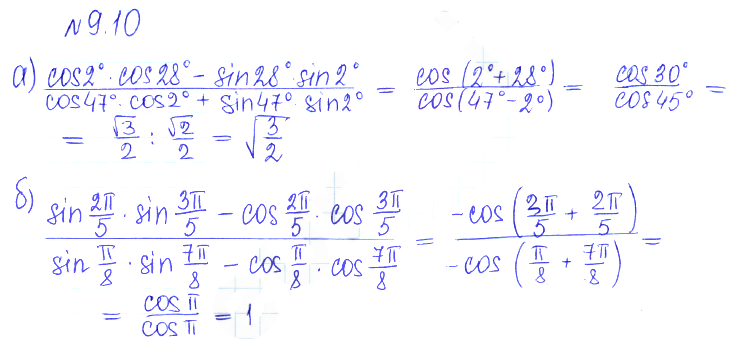 № 9.10
а) \frac{cos2° · cos28° - sin28° · sin2°}{cos47° · cos2° + sin47° · sin2°} = \frac{cos(2° + 28°)}{cos(47° - 2°)} = \frac{cos30°}{cos45°} =
= \frac{\sqrt{3}}{2} : \frac{\sqrt{2}}{2} = \sqrt{\frac{3}{2}}
б) \frac{sin\frac{2π}{5} · sin\frac{3π}{5} - cos\frac{2π}{5} · cos\frac{3π}{5}}{sin\frac{π}{8} · sin\frac{7π}{8} - cos\frac{π}{8} · cos\frac{7π}{8}} = \frac{-cos(\frac{3π}{5} + \frac{2π}{5})}{-cos(\frac{π}{8} + \frac{7π}{8})} =
= \frac{cosπ}{cosπ} = 1